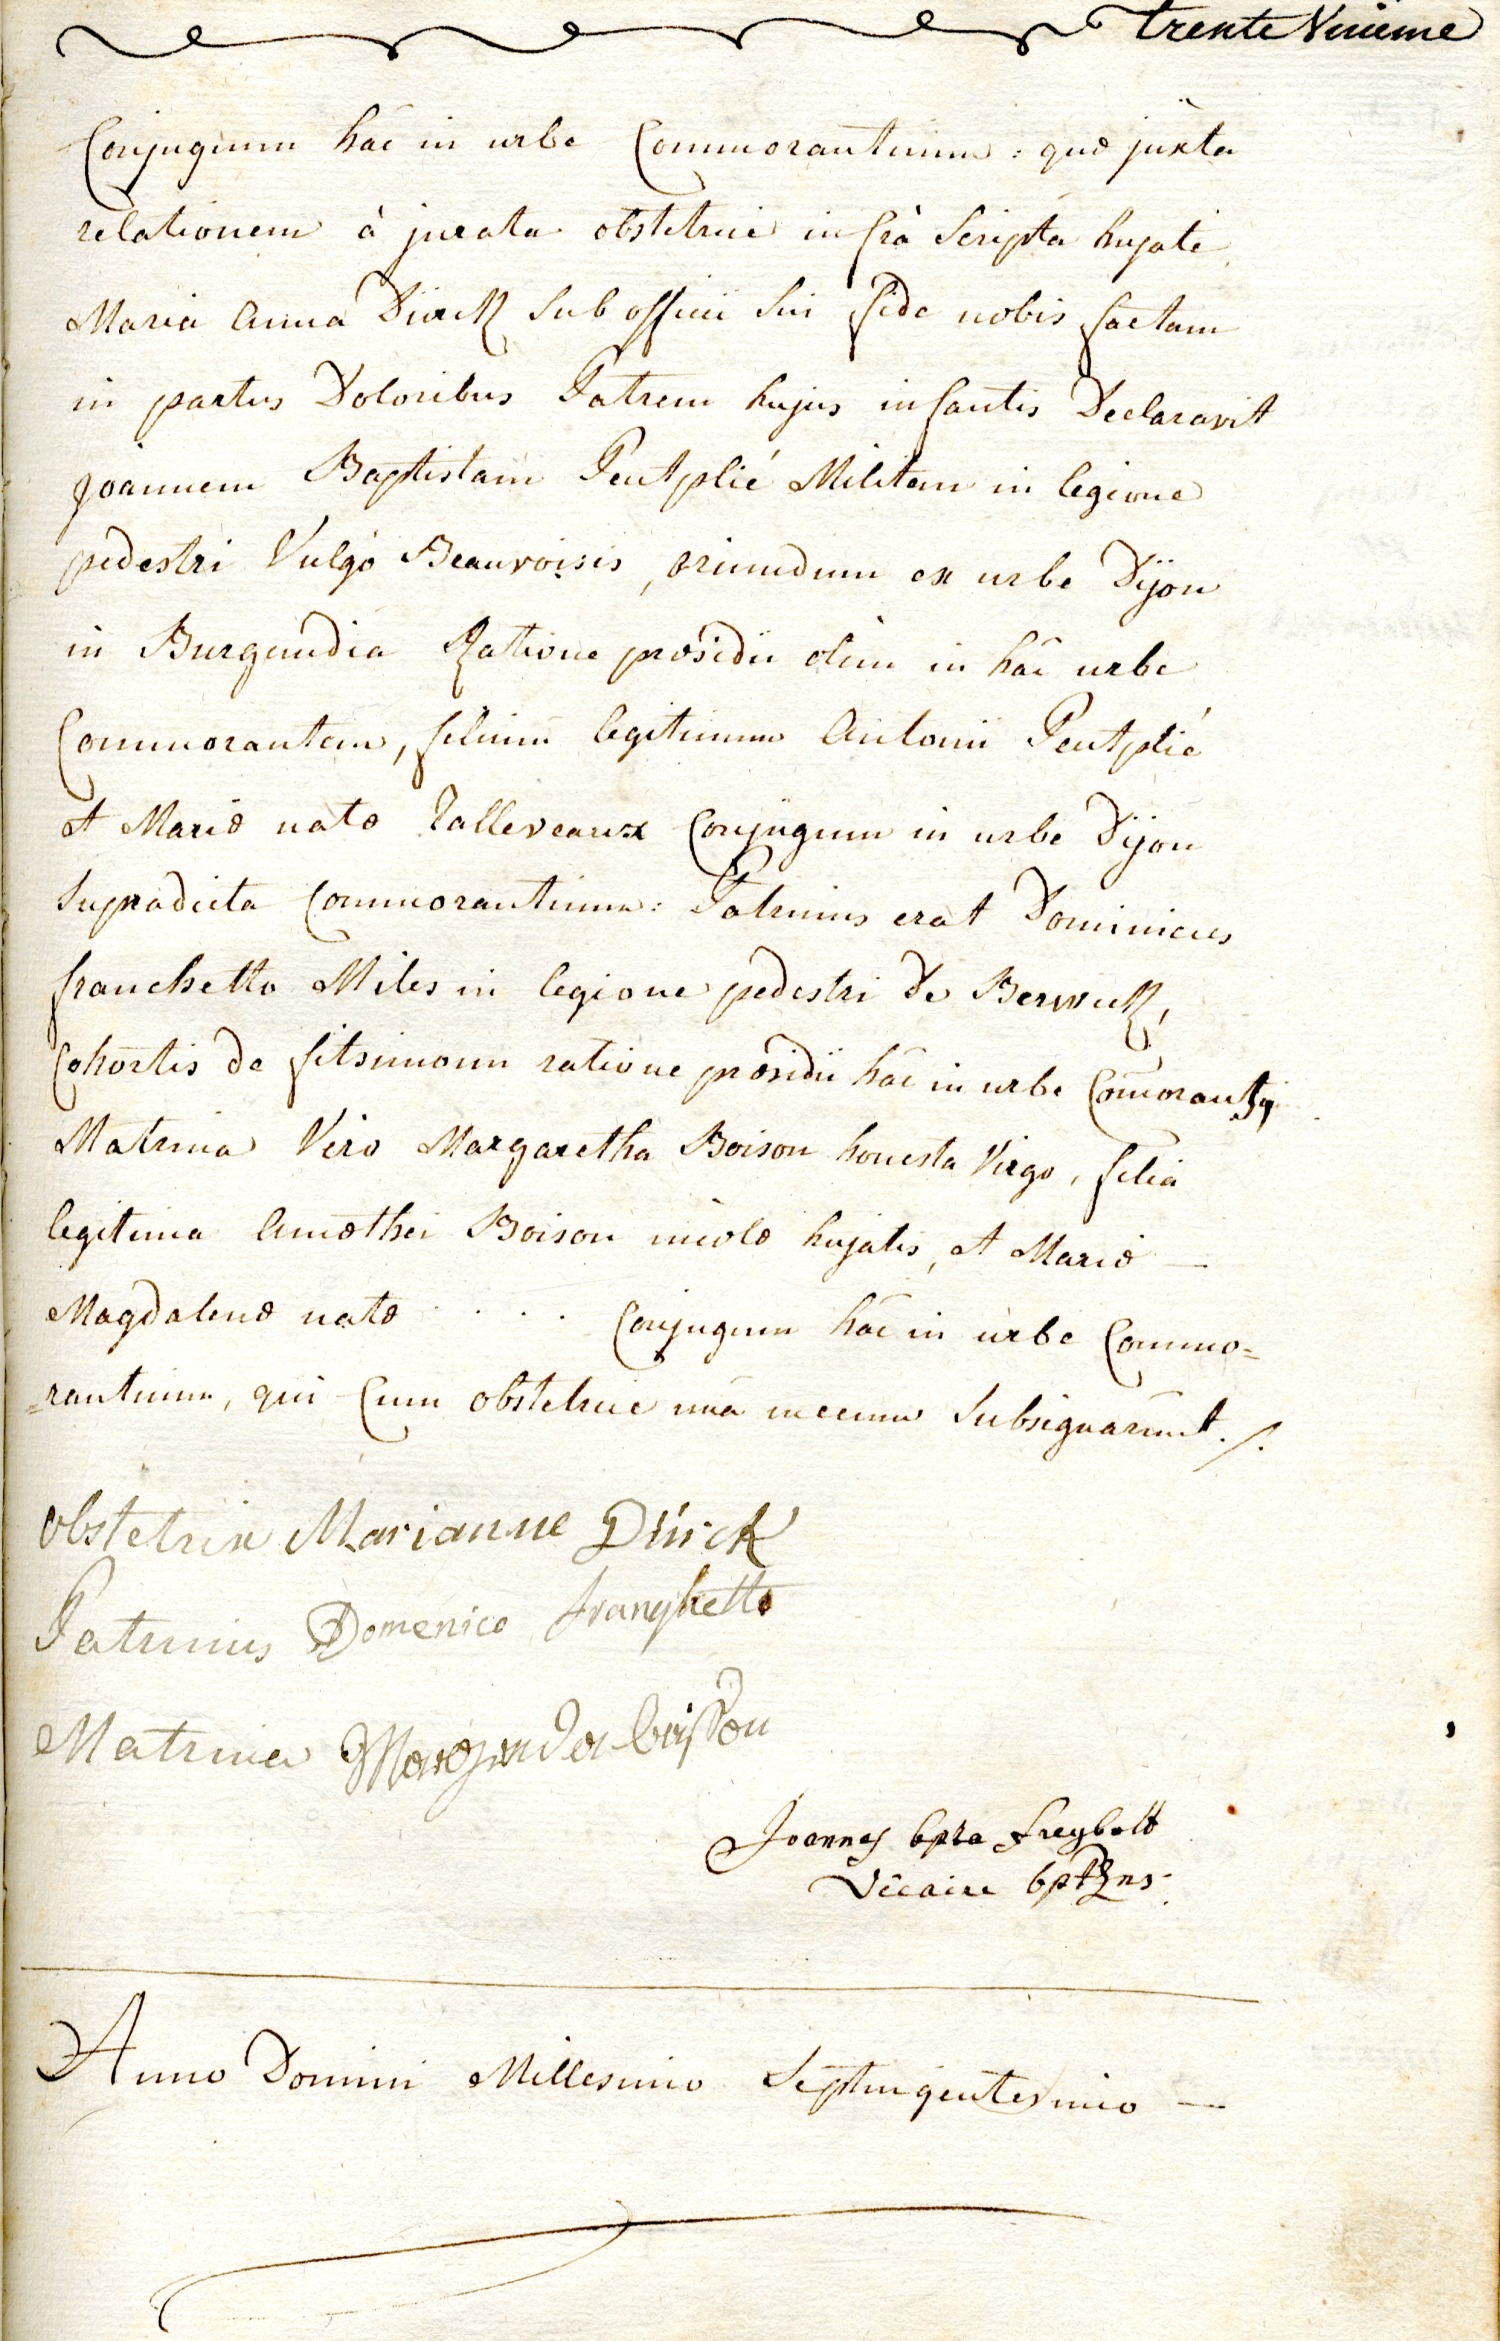 trente Unieme
Conjugum hâc in urbe Commorantium: quæ juxta
relationem à jurata obstetrice infrà Scripta hujate
Maria Anna Dürck Sub officii Sui fide nobis factam
in partus Doloribus Patrem hujus infantis Declaravit
Joannem Baptistam Peutplié Militem in legione
pedestri Vulgò Beauvoisis, oriundum ex urbe Dijon
in Burgundia Ratione præsidii olim in hâc urbe
Commorantem, filium legitimum Antonii Peutplié
et Mariæ natæ Talleveaux Conjugum in urbe Dijon
Supradicta Commorantium: Patrinus erat Dominicus
franchetto Miles in legione pedestri de Berwick,
Cohortis de fitsimonn ratione præsidii hâc in urbe Com̄orantis
Matrina Vero Margaretha Boison honesta Virgo, filia
legitima Amæthei Boison incolæ hujatis, et Mariæ —
Magdalenæ natæ . . . . Conjugum hâc in urbe Commo=
=rantium, qui Cum obstetrice unâ mecum Subsignarunt ./.
obstetrix Marianne Dürck
Patrinus Domenico franghetto
Matrina boisson
Joannes bpta freybolt
Vicaire bptzns
Anno Domini Millesimo Septingentesimo —